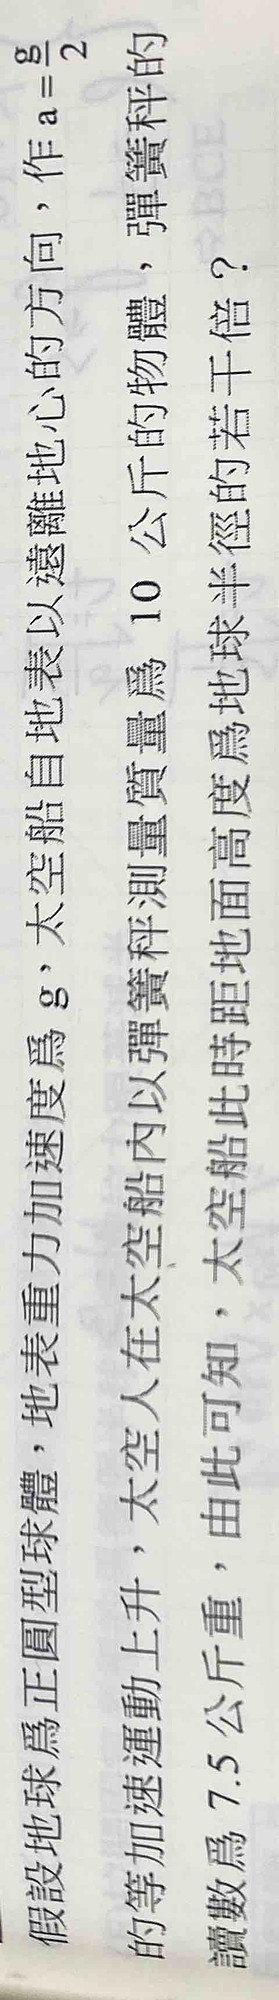 假設地球爲正圓型球體，地表重力加速度爲 g，太空船自地表以遠離地心的方向，作 a=g/2
的等加速運動上升，太空人在太空船內以彈簧秤測量質量爲 10 公斤的物體，彈簧秤的
讀數爲 7.5 公斤重，由此可知，太空船此時距地面高度爲地球半徑的若干倍？